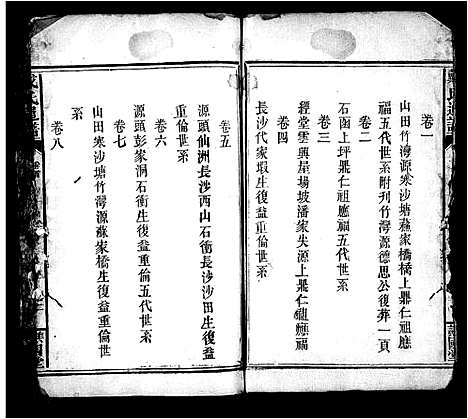 卷一
山田竹灣源寒沙塘蘇家橋橋上鼎仁祖應
福五代世系附刋竹灣源德思公復葬一頁
卷二
石函上坪鼎仁祖應福五代世系
卷三
經堂雲興屋場坡潘家失源上鼎仁祖應福
卷四
長沙代家塅生復益重倫世系
卷五
源頭仙洲長沙西山石衝長沙沙田生復益
重倫世系
卷六
源頭彭家洞石衝生復益重倫五代世系
卷七
山田寒沙塘竹灣源蘇家橋生復益重倫世
系
卷八
戴氏通譜